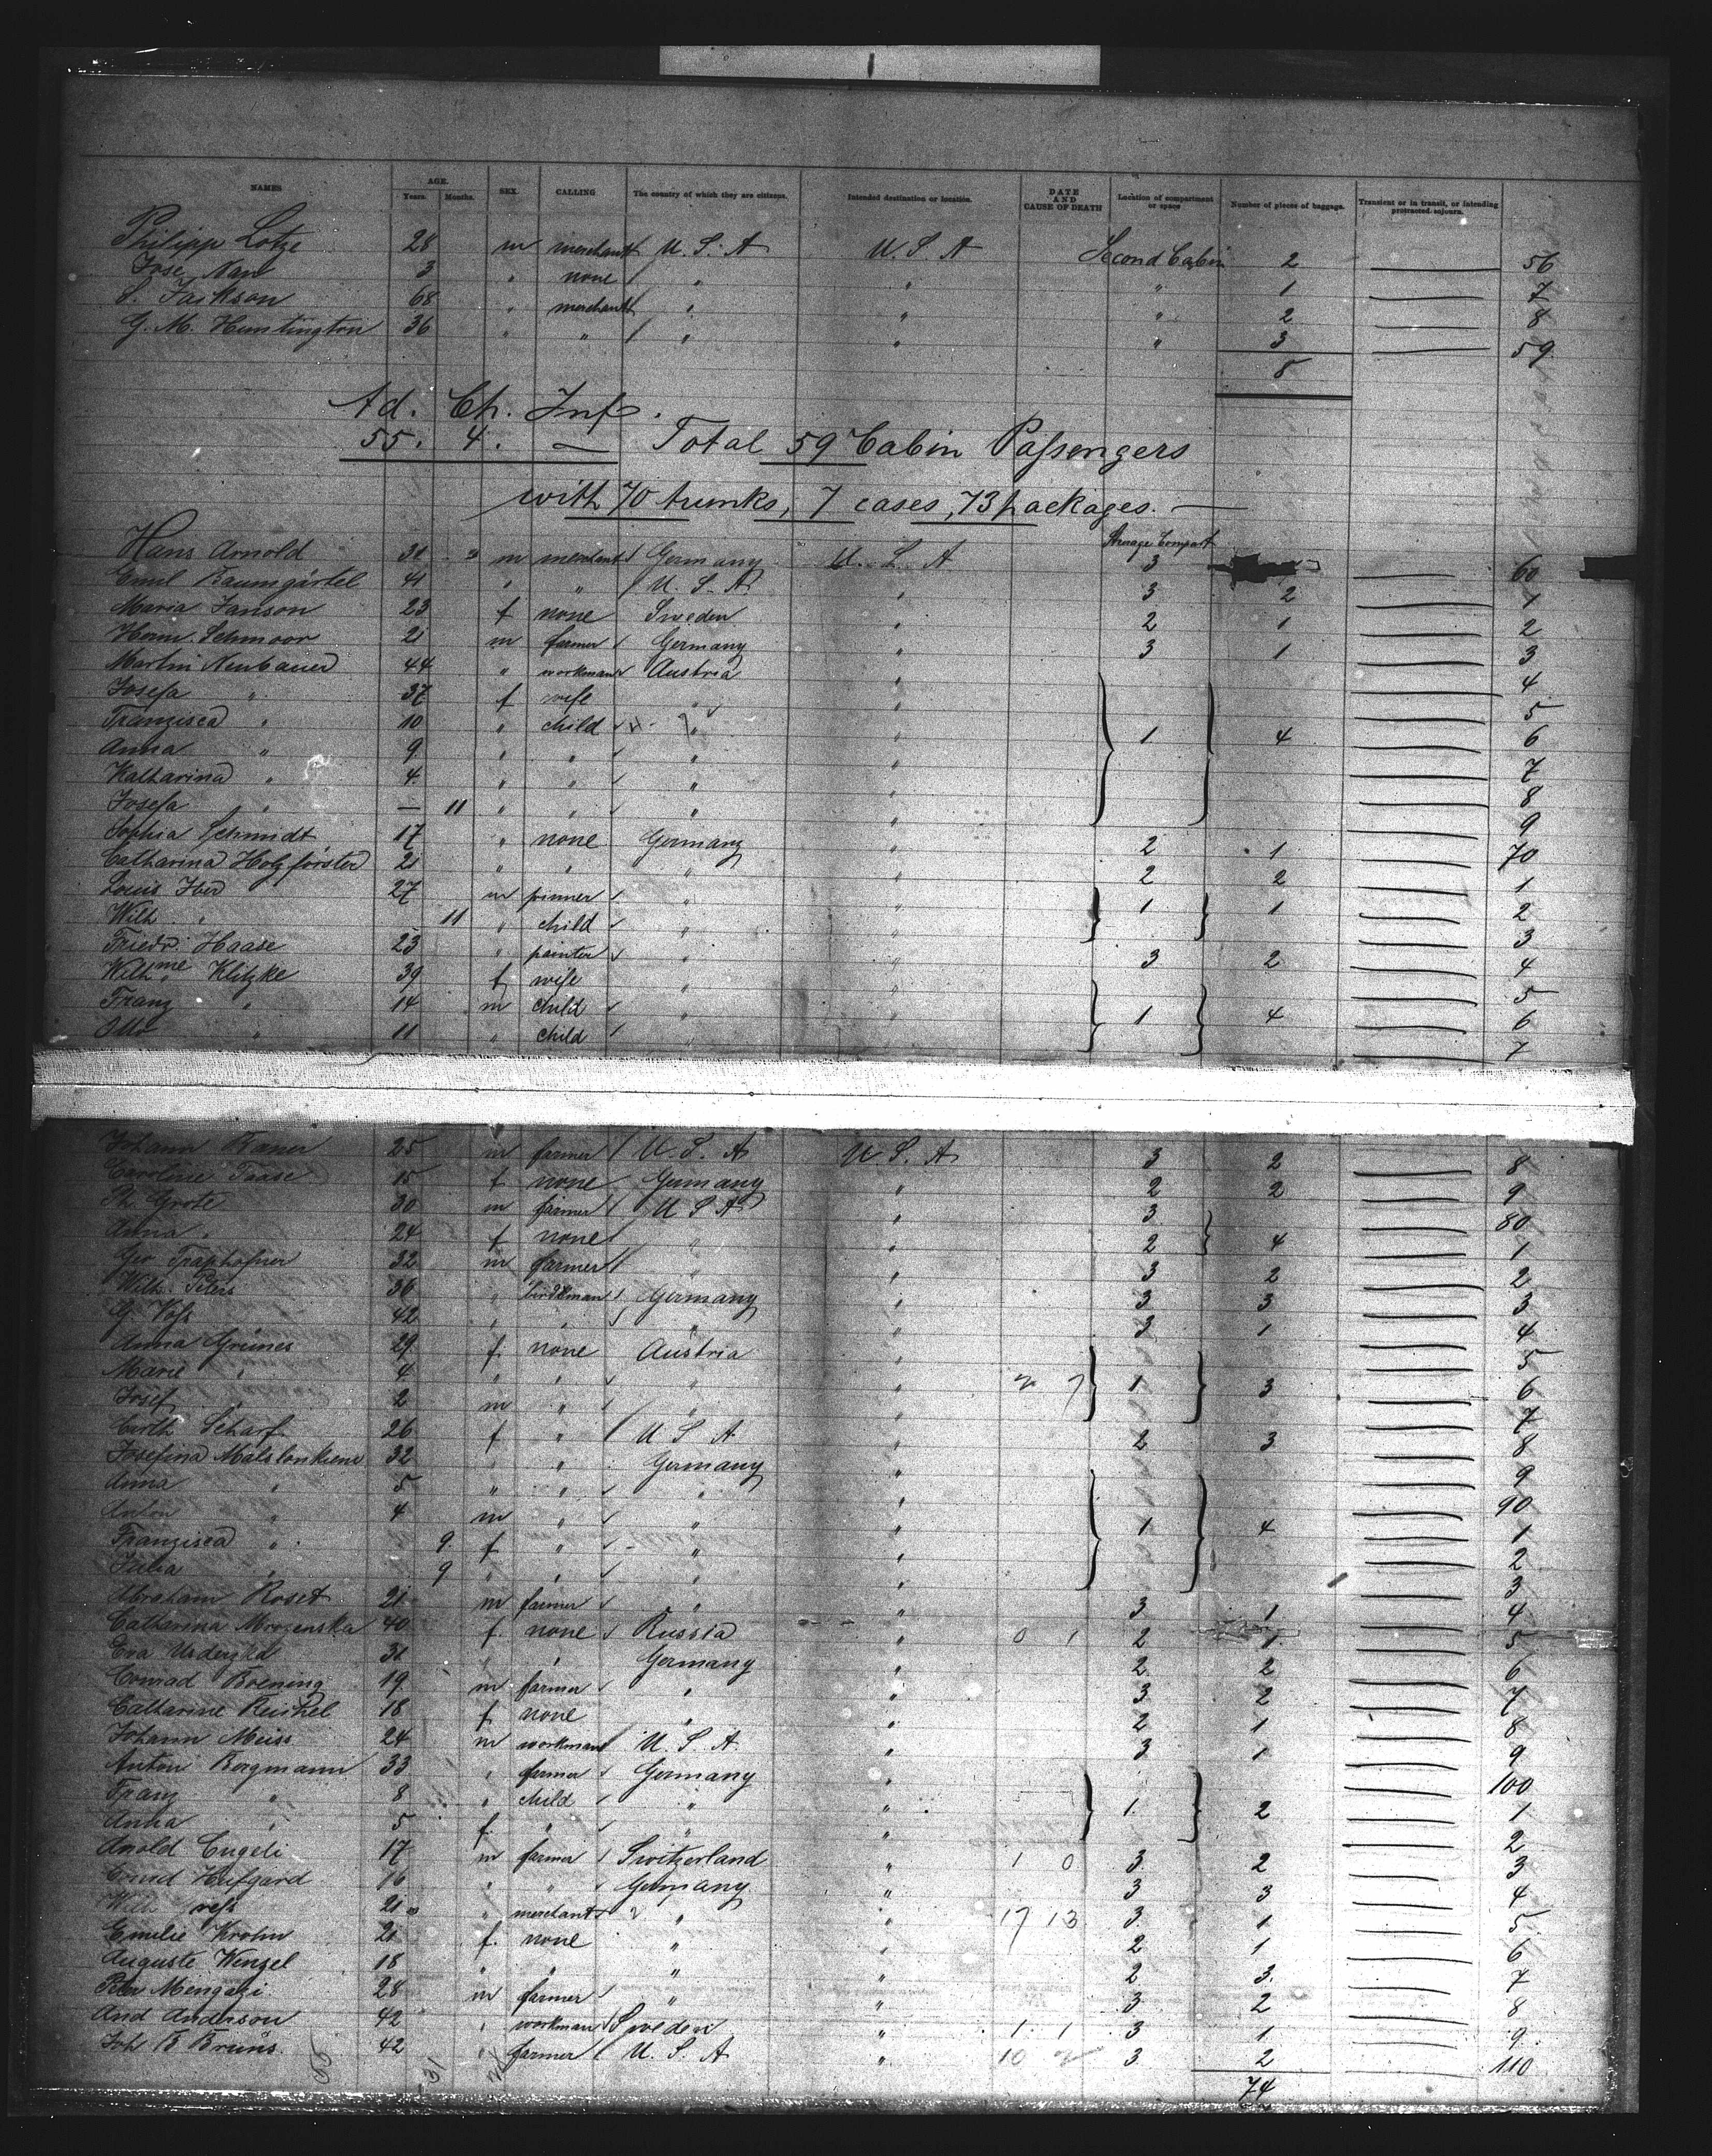 NAMES AGE. Years. Months. SEX. CALLING The country of which they are citizens. Intended destination or location. DATE AND CAUSE OF DEATH Location of compartment or space Number of pieces of baggage. Transient or in transit, or intending protracted sojourn.
Philipp Lotze 28 m merchant U. S. A U. S. A Second Cabin 2 56
Jose Nan 3 " none " " " 1 7
S. Jackson 68 " merchant " " " 2 8
G. M. Huntington 36 " " " " " 3 59
8
Ad. Ch. Inf.
55. 4. — Total 59 Cabin Passengers
with 70 trunks, 7 cases, 73 packages. —
Steerage Compart
Hans Arnold m merchant Germany U. S. A 3 60
Emil Baumgärtel 41 " " U. S. A " 3 2 1
Maria Janson 23 f none Sweden " 2 1 2
Herm. Schmoor 21 m farmer Germany " 3 1 3
Martin Neubauer 44 " workman Austria " 4
Josefa " 37 f wife " " 5
Franzisca " 10 " child " " 1 4 6
Anna " 9 " " " " 7
Katharina " 4 " " " " 8
Josefa " — 11 " " " " 9
Sophia Schmidt 17 " none Germany " 2 1 70
Catharina Holzförster 21 " " " " 2 2 1
Louis 27 m " " 1 1 2
Wilh. " 11 " child " " 3
Friedr. Haase 23 " painter " " 3 2 4
Wilhme Klitzke 39 f wife " " 5
Franz " 14 m child " " 1 4 6
Otto " 11 " child " 7
Johann Bauer 25 m farmer U. S. A U. S. A 3 2 8
Caroline 15 f none Germany " 2 2 9
Ph Grote 30 m farmer U S A " 3 80
Anna " 24 f none " " 2 4 1
Geo Traphofner 32 m farmer " " 3 2 2
Wilh Peters 36 " Germany " 3 3 3
G Voss 42 " " " " 3 1 4
Anna Grünes 29 f. none Austria " 5
Marie " 4 " " " " 1 3 6
Josef " 2 m " " " 7
Scharf 26 f " U S A " 2 3 8
Josefina 32 " " Germany " 9
Anna " 5 " " " " 90
Anton " 4 m " " " 1 4 1
Franzisca " 9 f " " " 2
Julia " 9 " " " " 3
Abraham Roset 21 m farmer " " 3 1 4
Catharina Mrozenska 40 f. none Russia " 0 1 2 1 5
Eva 31 " " Germany " 2 2 6
Conrad Boening 19 m farmer " " 3 2 7
Catharine Reichel 18 f none " " 2 1 8
Johann Meiss 24 m workman U. S. A. " 3 1 9
Anton Borgmann 33 " farmer Germany " 100
Franz " 8 " child " " 1. 2 1
Anna " 5 f. " " " 2
Anold Engeli 17 m farmer Switzerland " 1 0 3 2 3
Hufgard 16 " " Germany " 3 3 4
Wilh 21 " merchant " " 17 13 3 1 5
Emilie Krohn 21 f. none " " 2 1 6
Auguste Wenzel 18 " " " " 2 3. 7
Peter 28 m farmer " " 3 2 8
And Anderson 42 " workman Sweden " 1 1 3 1 9.
Joh B Bruns. 42 " farmer U. S. A " 10 2 3 2 110
55 31 74